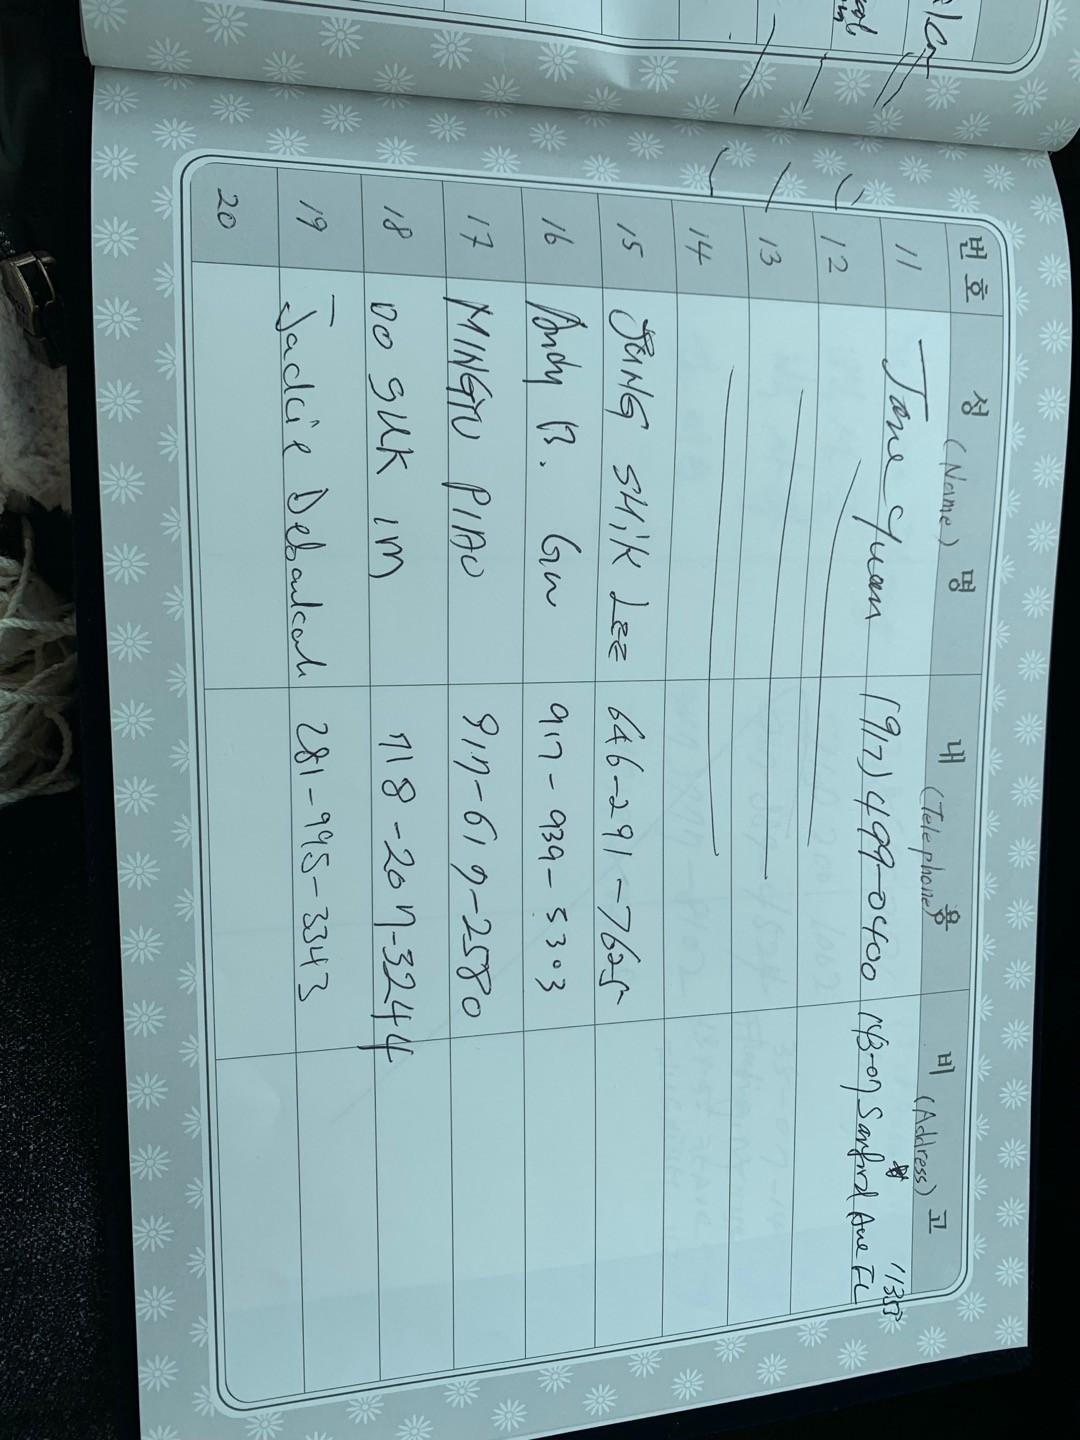 번호 성 (Name) 명 내 (Telephone) 용 비 (Address) 고
11 Jane Yuan (917) 499-0400 143-07 Sanford Ave FL 11355
12
13
14
15 JUNG SHIK LEE 646-291-7625
16 Andy B. Gw 917-939-5303
17 MINGYU PIAO 917-619-2580
18 DO SUK IM 718-207-3244
19 Jackie 281-995-3343
20